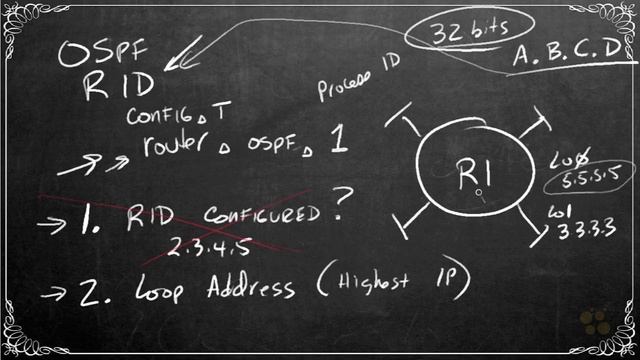 OSPF
RID
32 bits
A.B.C.D
Process ID
config T
router ospf 1
1. RID CONFIGURED?
2.3.4.5
2. Loop Address (Highest IP)
R1
Lo0
5.5.5.5
Lo1
3.3.3.3